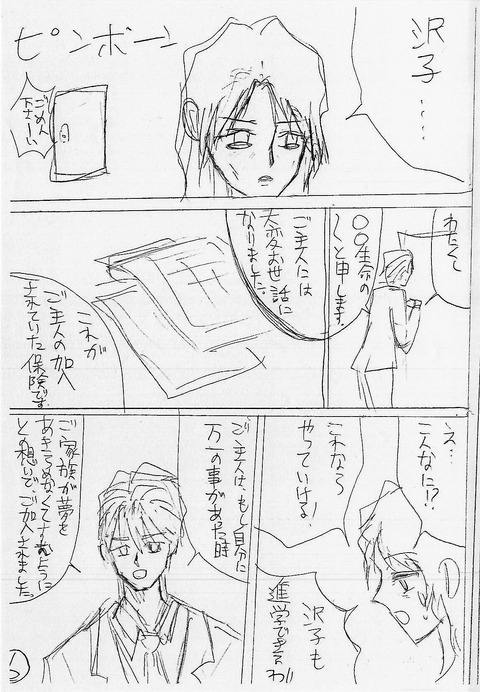 沢子……
ピンポーン
ごめん
下さーい
わたくし
〇〇生命の
〜と申します。
ご主人には
大変お世話に
なりました。
これが
ご主人の加入
されていた保険です。
え…
こんなに!?
これなら
やっていける!
沢子も
進学できるわ
ご主人は、もし自分に
万一の事があった時
ご家族が夢を
あきらめなくてすむように
との想いで、ご加入されました。